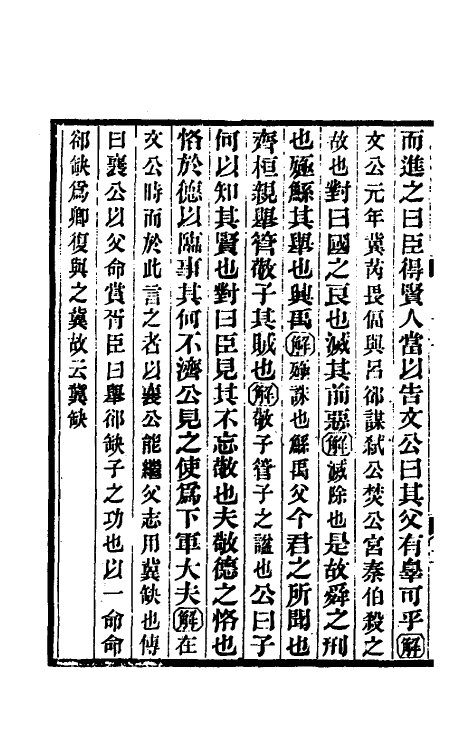 而進之曰臣得賢人當以告文公曰其父有辠可乎解
文公元年冀芮畏偪與呂郤謀弒公焚公宮秦伯殺之
故也對曰國之良也滅其前惡解滅除也是故舜之刑
也殛鯀其舉也興禹解殛誅也鯀禹父今君之所聞也
齊桓親舉管敬子其賊也解敬子管子之諡也公曰子
何以知其賢也對曰臣見其不忘敬也夫敬德之恪也
恪於德以臨事其何不濟公見之使爲下軍大夫解在
文公時而於此言之者以襄公能繼父志用冀缺也傳
曰襄公以父命賞胥臣曰舉郤缺子之功也以一命命
郤缺爲卿復與之冀故云冀缺